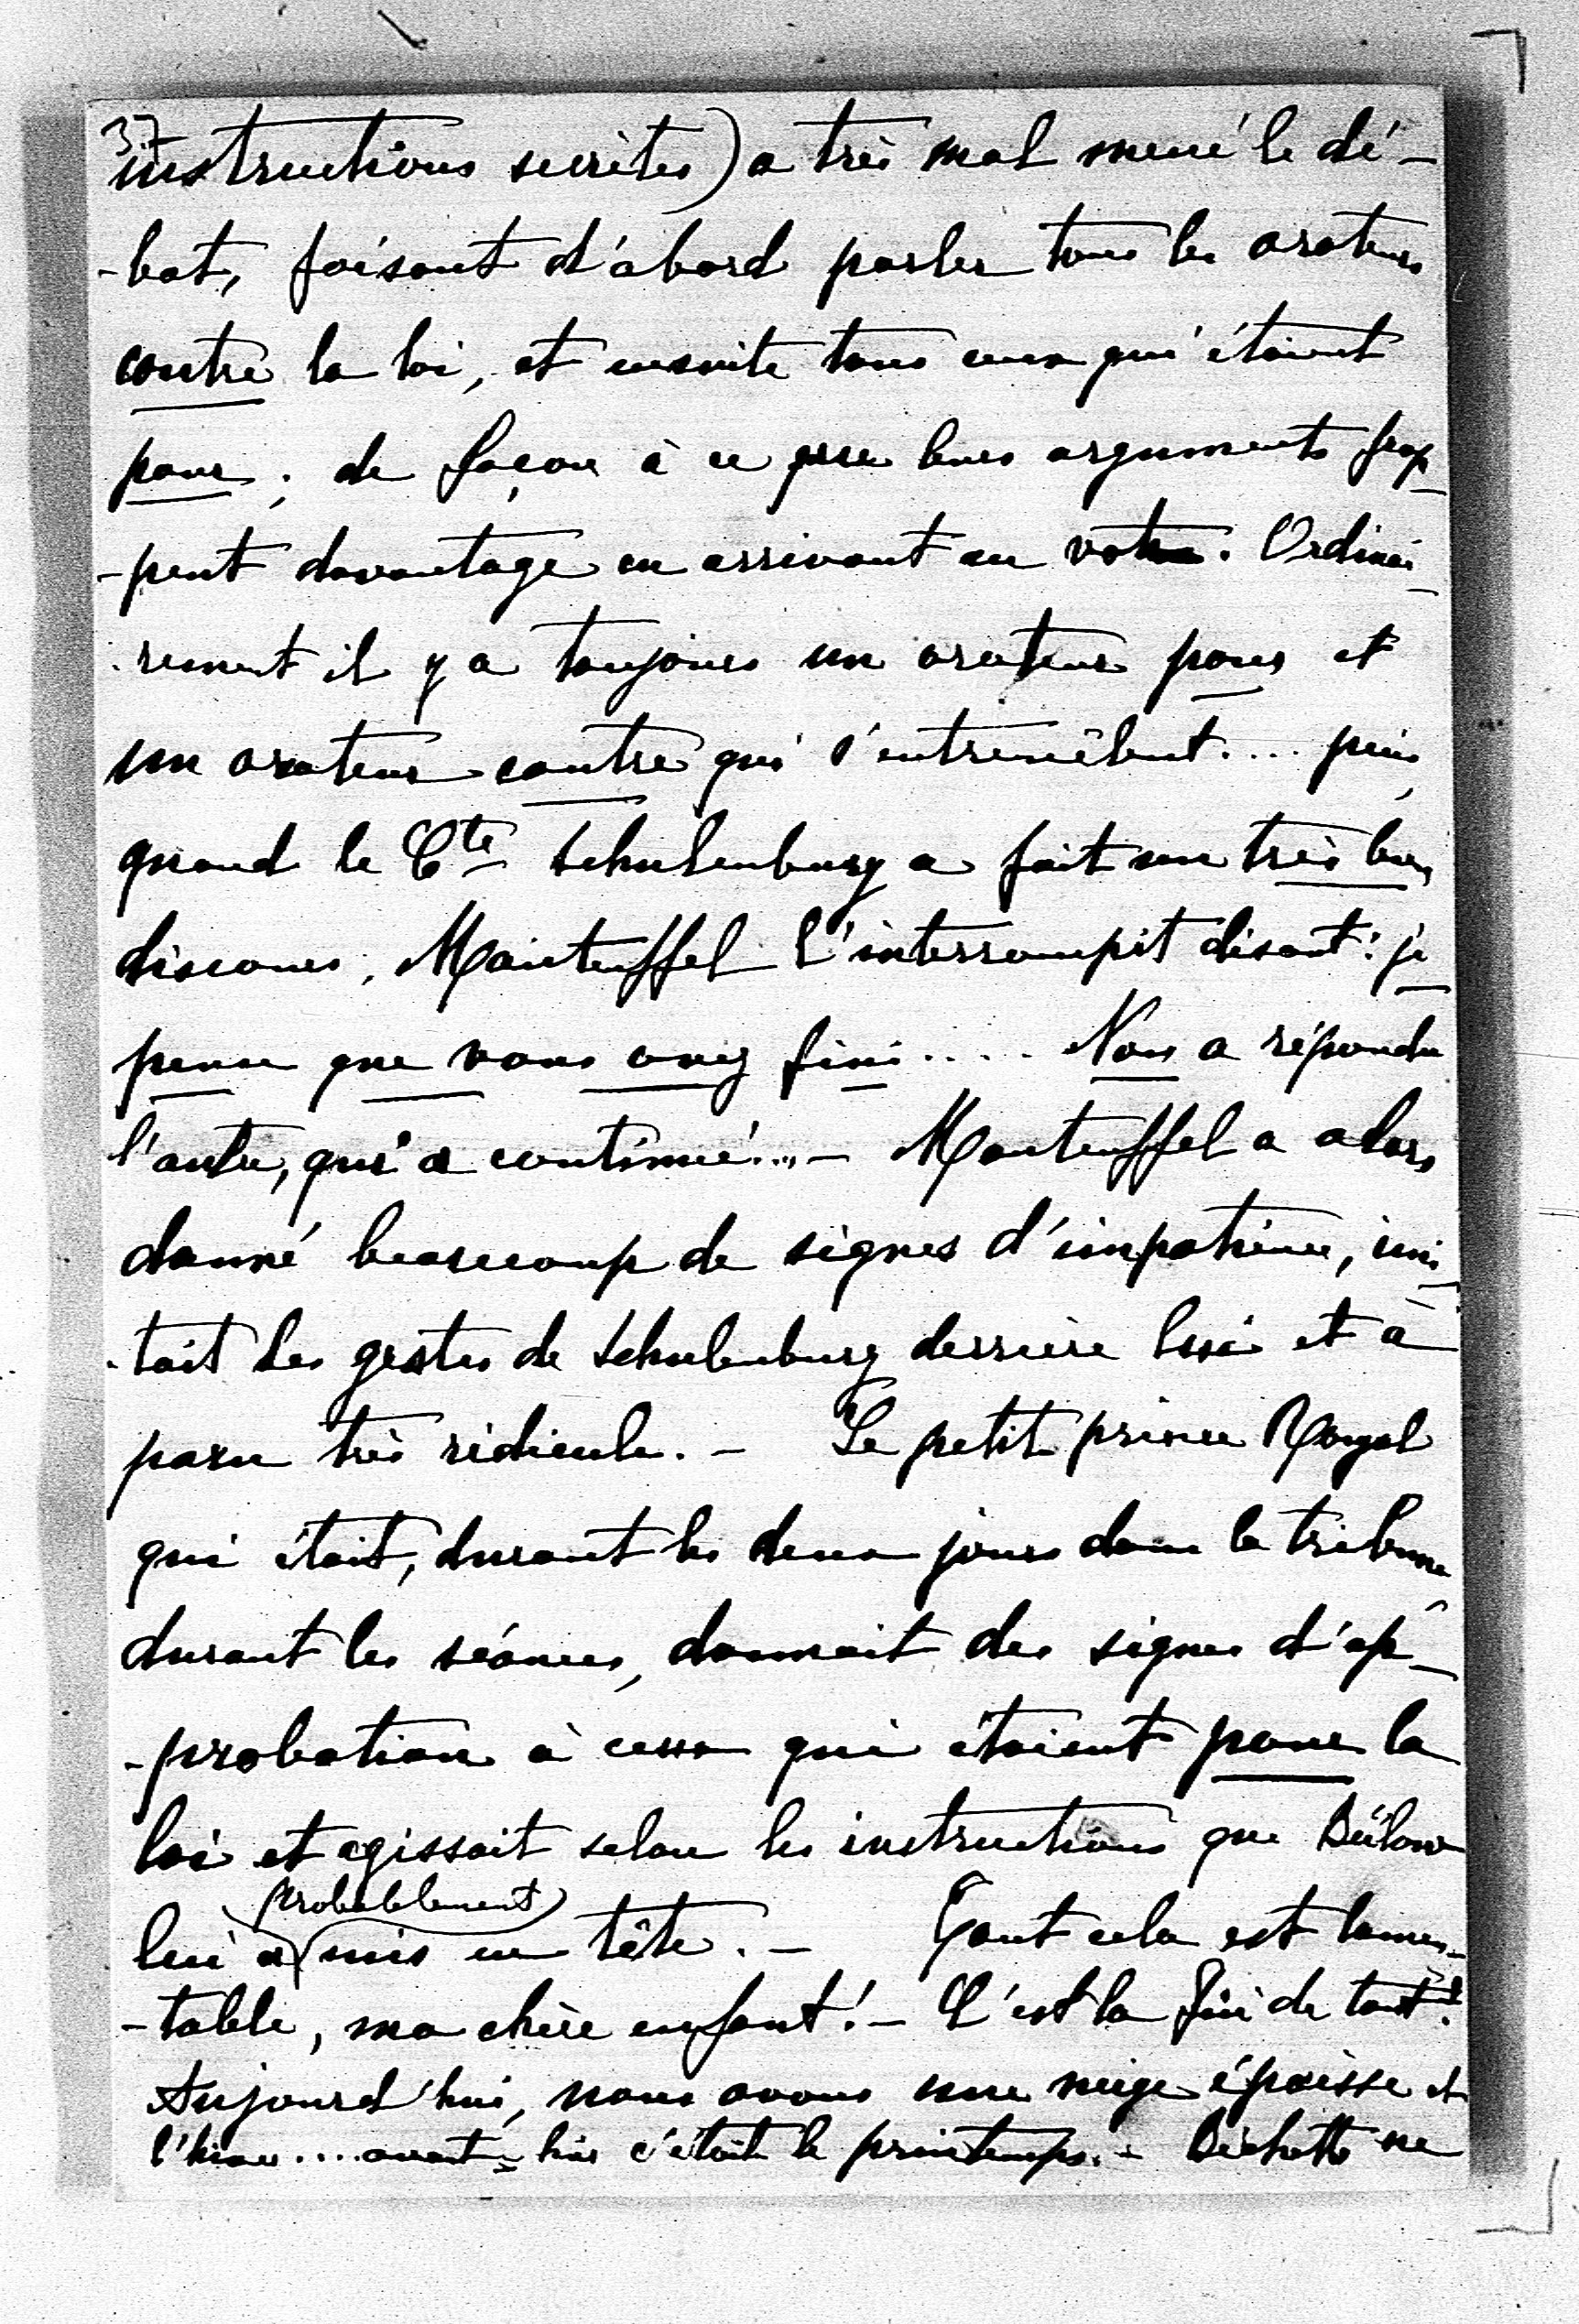 37
instructions secrètes) a très mal mené le dé-
-bat, faisant d'abord parler tous les orateurs
contre la loi, et ensuite tous ceux qui étaient
pour; de façon à ce que leurs arguments frap-
-pent davantage en arrivant au vote. Ordinai-
-rement il y a toujours un orateur pour et
un orateur contre qui s'entremêlent.... puis,
quand le Cte Schulenburg a fait un très bon
discours, Manteuffel l'interrompit disant: je
pense que vous avez fini..... Non a répondu
l'autre, qui a continué...- Manteuffel a alors
donné beaucoup de signes d'impatience, imi-
-tait les gestes de Schulenburg derrière lui et a
paru très ridicule. - Le petit prince Royal
qui était, durant les deux jours dans la tribune
durant les séances, donnait des signes d'ap-
-probation à ceux qui étaient pour la
loi et agissait selon les instructions que Bülow
probablement
lui a mis en tête. - Tout cela est lamen-
-table, ma chère enfant! - C'est la fin de tout!
Aujourd'hui, nous avons une neige épaisse et
l'hiver.... avant-hier c'était le printemps. - ne